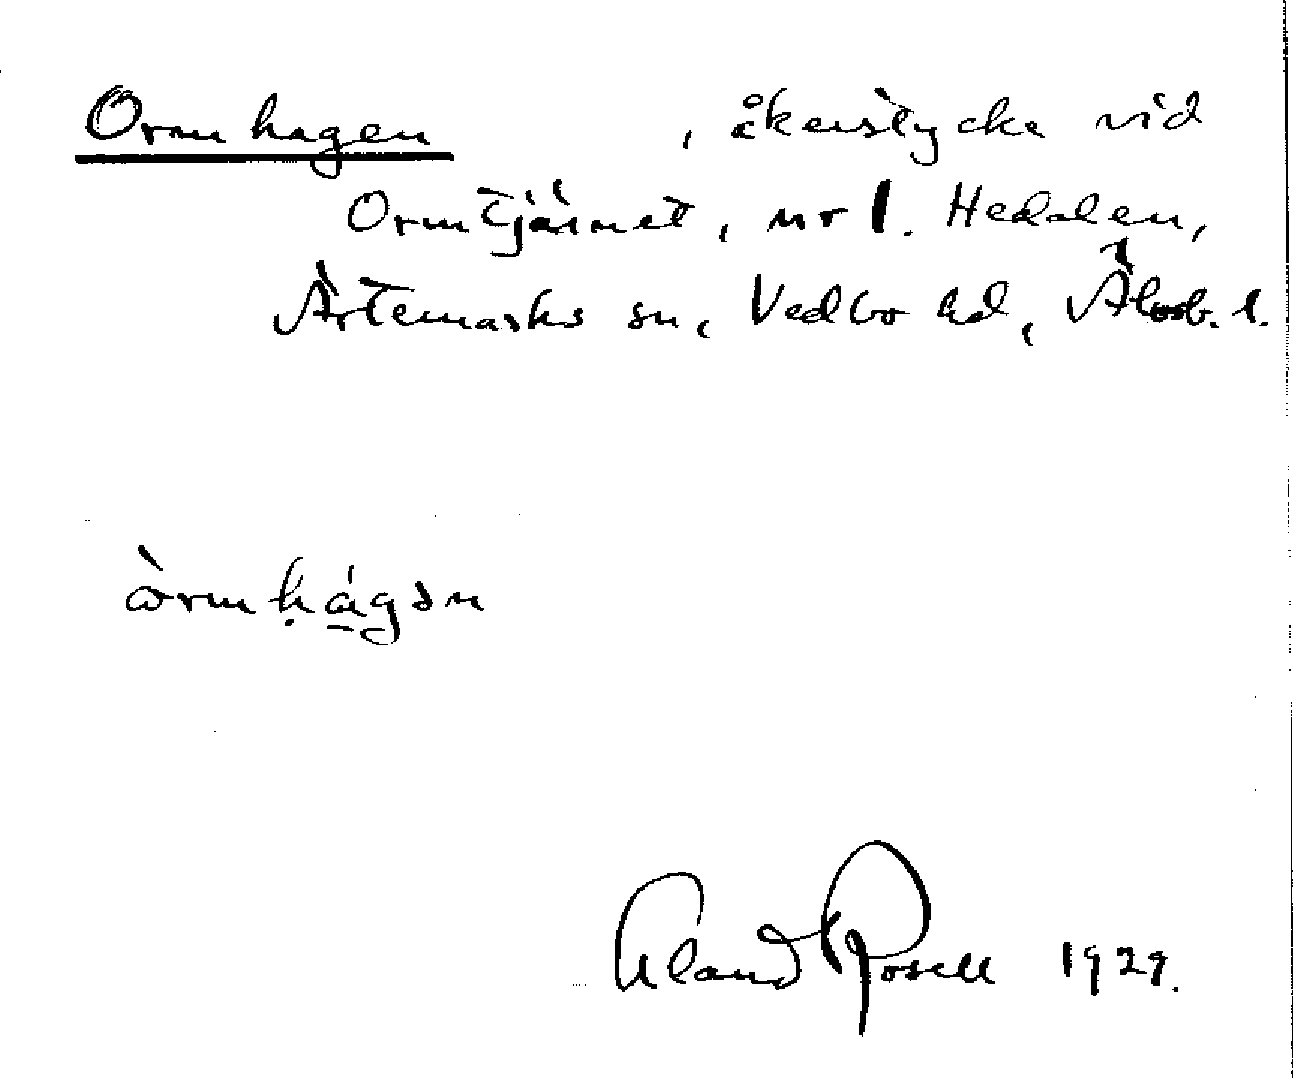 Ormhagen , åkerstycke vid
Ormtjärnet, nr 1. Hedalen,
Ärtemarks sn, Vedbo hd, Älvsb. l.
òrmḥágən
Erland Rosell 1929.